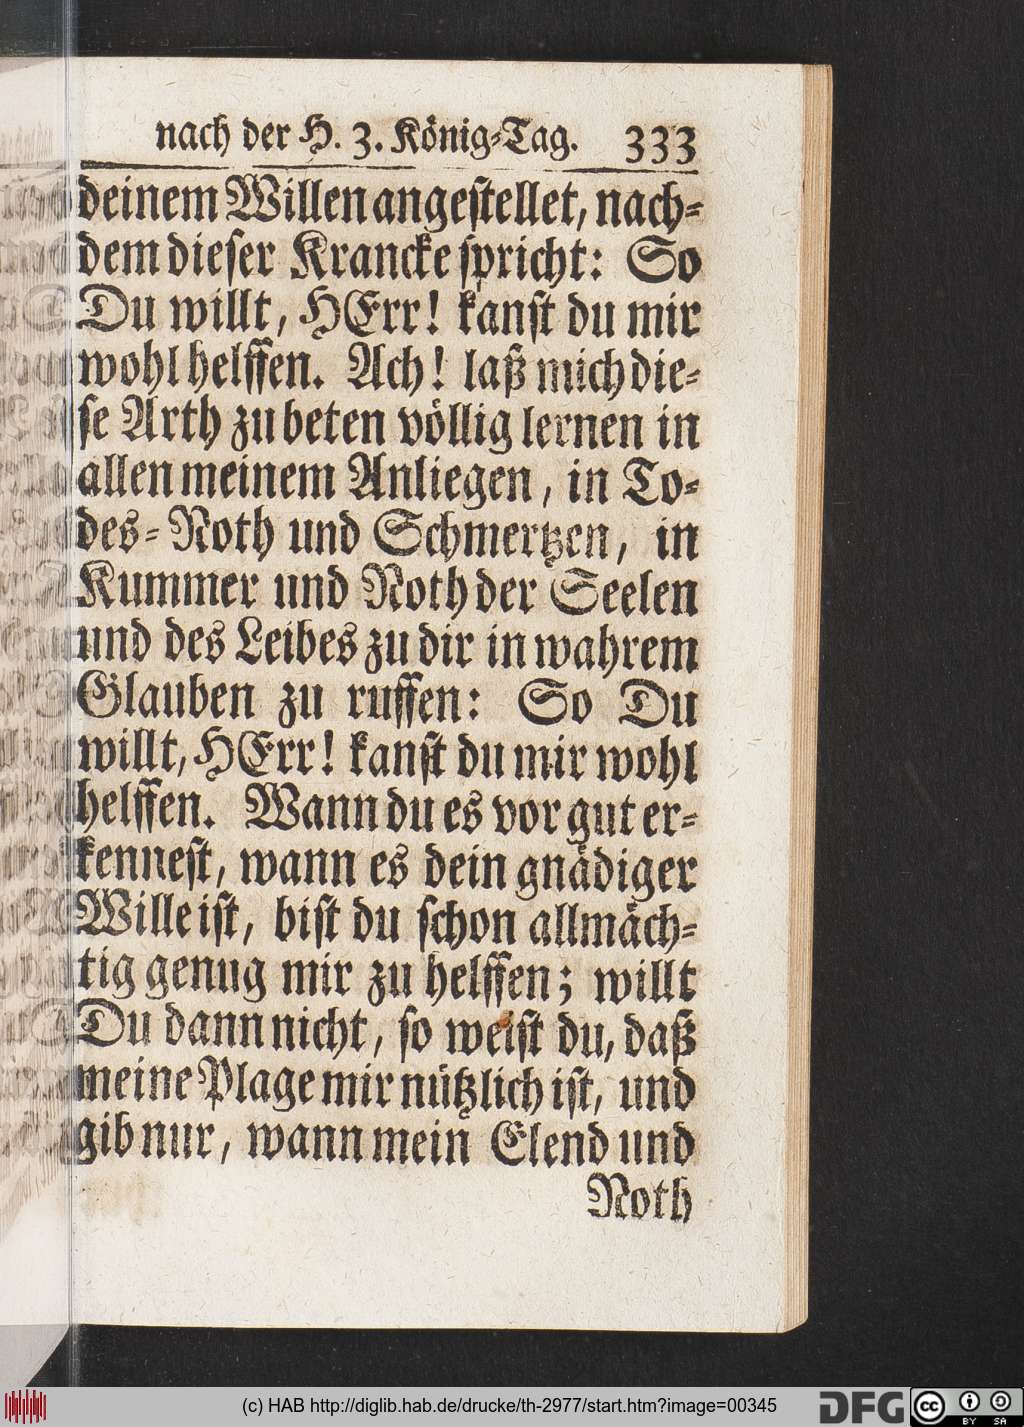 nach der H. 3. König-Tag. 333
deinem Willen angestellet, nach-
dem dieser Krancke spricht: So
Du willt, HErr! kanst du mir
wohl helffen. Ach! laß mich die-
se Arth zu beten völlig lernen in
allen meinem Anliegen, in To-
des-Noth und Schmertzen, in
Kummer und Noth der Seelen
und des Leibes zu dir in wahrem
Glauben zu ruffen: So Du
willt, HErr! kanst du mir wohl
helffen. Wann du es vor gut er-
kennest, wann es dein gnädiger
Wille ist, bist du schon allmäch-
tig genug mir zu helffen; willt
Du dann nicht, so weist du, daß
meine Plage mir nützlich ist, und
gib nur, wann mein Elend und
Noth
(c) HAB http://diglib.hab.de/drucke/th-2977/start.htm?image=00345
DFG cc BY SA